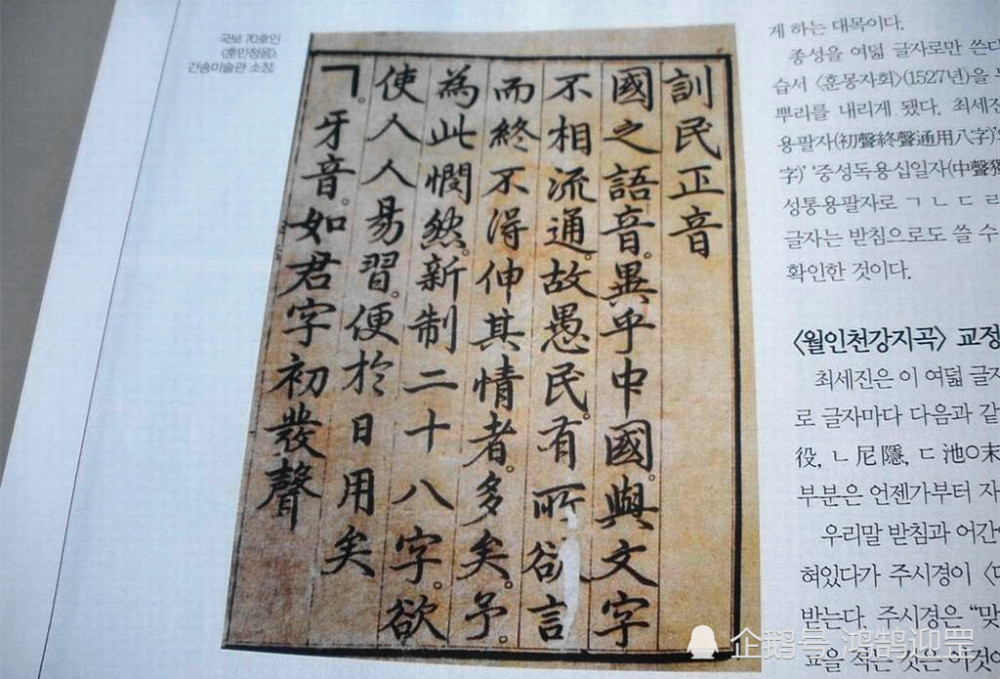 국보 70호인
〈훈민정음〉.
간송미술관 소장.
訓民正音
國之語音。異乎中國。與文字
不相流通。故愚民。有所欲言
而終不得伸其情者。多矣。予。
為此憫然。新制二十八字。欲
使人人易習。便於日用矣
ㄱ。牙音。如君字初發聲
게 하는 대목이다.
종성을 여덟 글자로만 쓴다
습서 〈훈몽자회〉(1527년)을
뿌리를 내리게 됐다. 최세진
용팔자(初聲終聲通用八字)'
字)' '중성독용십일자(中聲獨
성통용팔자로 ㄱ ㄴ ㄷ ㄹ
글자는 받침으로도 쓸 수
확인한 것이다.
〈월인천강지곡〉 교정
최세진은 이 여덟 글자
로 글자마다 다음과 같
役, ㄴ 尼隱, ㄷ 池○末
부분은 언젠가부터 자
우리말 받침과 어간
혀있다가 주시경이
받는다. 주시경은 "맞
적는 것은 이것
企鹅号 鸿鹄迎罡